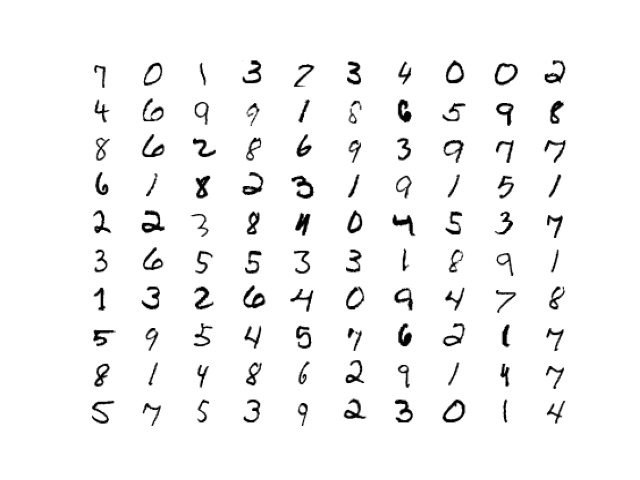 7 0 1 3 2 3 4 0 0 2
4 6 9 9 1 8 6 5 9 8
8 6 2 8 6 9 3 9 7 7
6 1 8 2 3 1 9 1 5 1
2 2 3 8 4 0 4 5 3 7
3 6 5 5 3 3 1 8 9 1
1 3 2 6 4 0 9 4 7 8
5 9 5 4 5 7 6 2 1 7
8 1 4 8 6 2 9 1 4 7
5 7 5 3 9 2 3 0 1 4